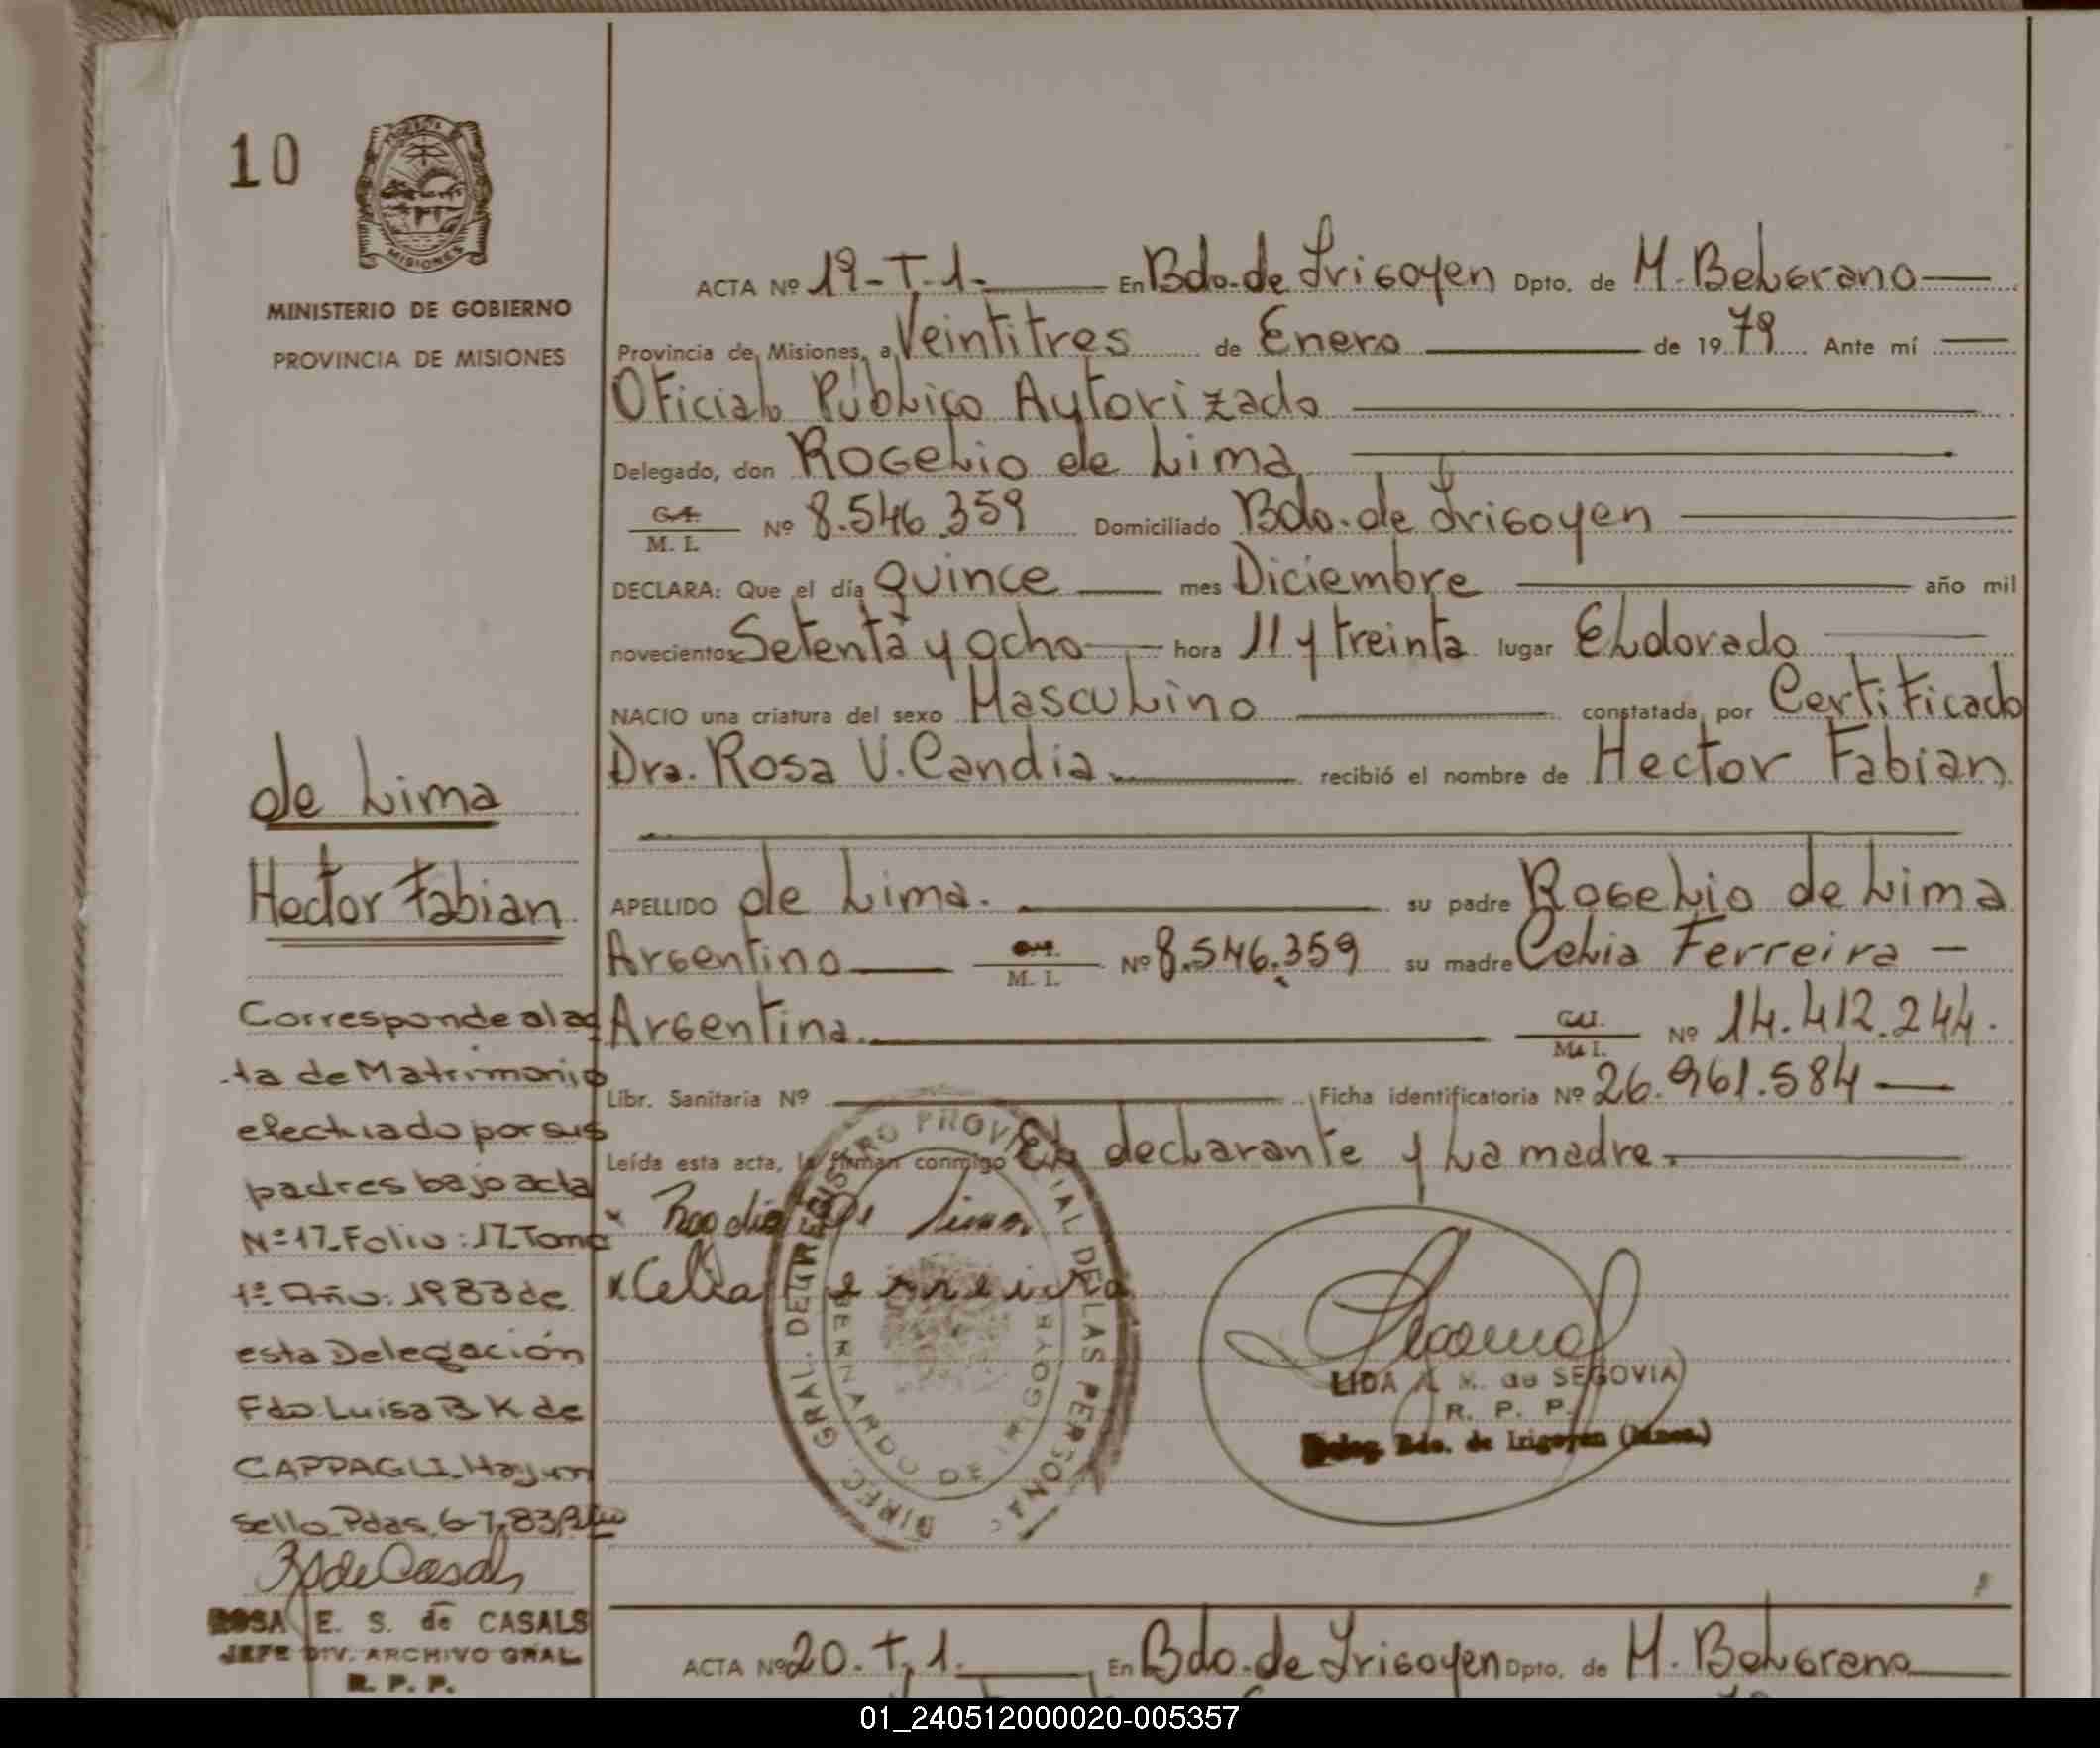 10
MISIONES
MINISTERIO DE GOBIERNO
PROVINCIA DE MISIONES
ACTA Nº 19-T.1. En Bdo. de Irigoyen Dpto. de M. Belgrano
Provincia de Misiones, a Veintitres de Enero de 1979 Ante mí
Oficial Público Autorizado
Delegado, don Rogelio de Lima
M. I. Nº 8.546.359 Domiciliado Bdo. de Irigoyen
DECLARA: Que el día quince mes Diciembre año mil
novecientos Setenta y ocho hora 11 y treinta lugar Eldorado
NACIO una criatura del sexo Masculino constatada por Certificado
Dra. Rosa V. Candia recibió el nombre de Hector Fabian
APELLIDO de Lima. su padre Rogelio de Lima
Argentino M. I. Nº 8.546.359 su madre Celia Ferreira
Argentina M. I. Nº 14.412.244.
Libr. Sanitaria Nº Ficha identificatoria Nº 26.961.584
Leída esta acta, la firman conmigo El declarante y La madre.
x de Lima
x Celia Ferreira
DIREC. GRAL. DEL REGISTRO PROVINCIAL DE LAS PERSONAS
BERNARDO DE IRIGOYEN
LIDA A. K. de SEGOVIA
R. P. P.
Deleg. Bdo. de Irigoyen (Mnes.)
de Lima
Hector Fabian
Corresponde al ac
ta de Matrimonio
efectuado por sus
padres bajo acta
Nº 17. Folio: 17. Tomo
1º Año: 1983 de
esta Delegación
Fdo. Luisa B K de
CAPPAGLI. Hay un
Sello. Pdas. 6-7-83
de Casals
ROSA E. S. de CASALS
JEFE DIV. ARCHIVO GRAL
R. P. P.
ACTA Nº 20. T. 1. En Bdo. de Irigoyen Dpto. de M. Belgrano
01_240512000020-005357